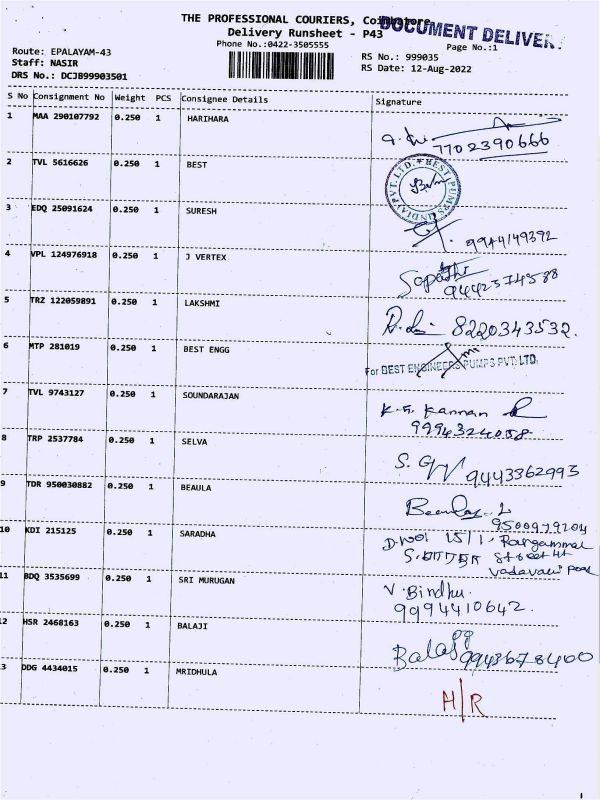 THE PROFESSIONAL COURIERS, Coimbatore
DOCUMENT DELIVER
Delivery Runsheet - P43
Phone No.:0422-3505555
Page No.:1
Route: EPALAYAM-43
RS No.: 999035
Staff: NASIR
RS Date: 12-Aug-2022
DRS No.: DCJB99903501
S No Consignment No Weight PCS Consignee Details Signature
1 MAA 290107792 0.250 1 HARIHARA
7702390666
2 TVL 5616626 0.250 1 BEST
BEST PUMPS (INDIA) PVT. LTD.
3 EDQ 25091624 0.250 1 SURESH
9944149392
4 VPL 124976918 0.250 1 J VERTEX
9442574588
5 TRZ 122059891 0.250 1 LAKSHMI
8220343532.
6 MTP 281019 0.250 1 BEST ENGG
For BEST ENGINEERS PUMPS PVT. LTD.
7 TVL 9743127 0.250 1 SOUNDARAJAN
Kannan
9994324058.
8 TRP 2537784 0.250 1 SELVA
9443362993
9 TDR 950030882 0.250 1 BEAULA
Beaulay. L
9500979204
10 KDI 215125 0.250 1 SARADHA
D.NO1 15/1, Rangammal
Street
Vadavalli Road
11 BDQ 3535699 0.250 1 SRI MURUGAN
V. Bindhu.
9994410642.
12 HSR 2468163 0.250 1 BALAJI
Balaji 9943678400
13 DDG 4434015 0.250 1 MRIDHULA
H/R